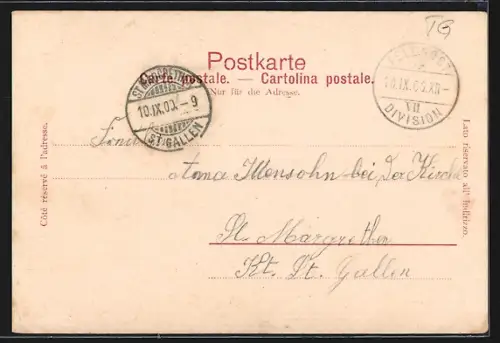 TG
Postkarte
Carte postale. — Cartolina postale.
Nur für die Adresse.
ST MARGRETHEN
10.IX.00.–9
(ST. GALLEN)
FELDPOST
10.IX.00.XII–
VII
DIVISION
Côté réservé à l'adresse.
Lato riservato all' indirizzo.
Anna Mensohn bei der Kirche
St. Margrethen
Kt. St. Gallen